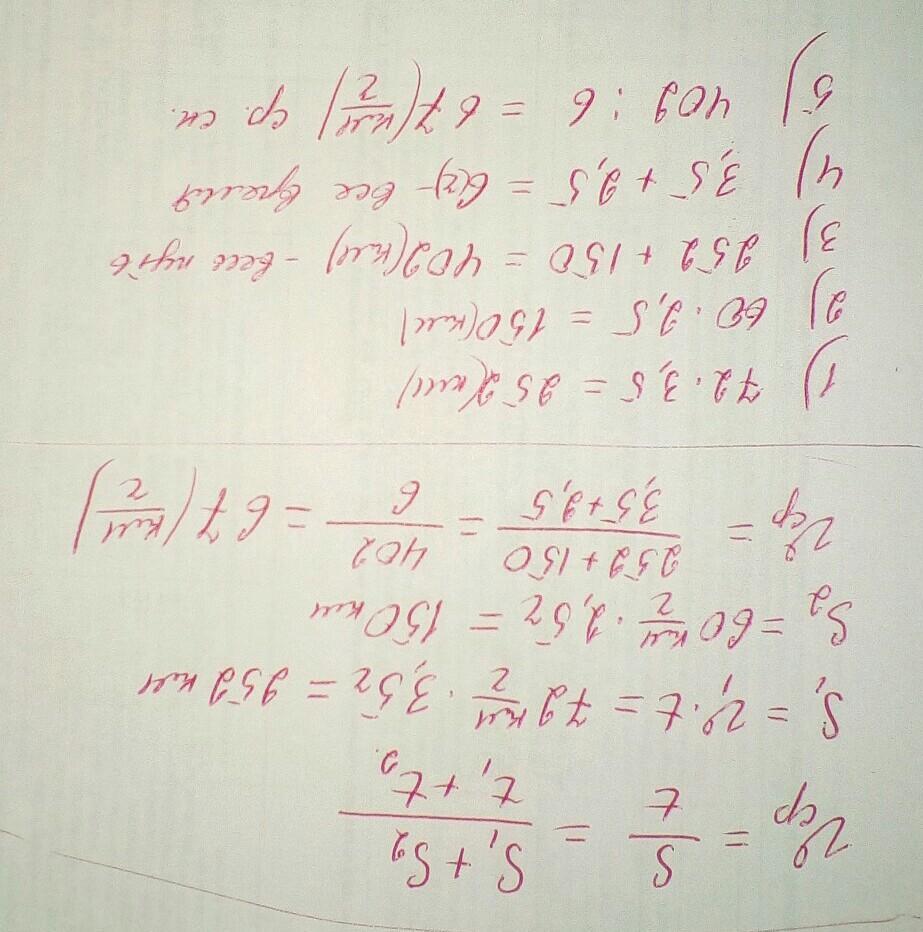 υср = S/t = (S₁ + S₂)/(t₁ + t₂)
S₁ = υ₁·t = 72 км/г · 3,5г = 252 км
S₂ = 60 км/г · 2,5г = 150 км
υср = (252 + 150)/(3,5 + 2,5) = 402/6 = 67 (км/г)
1) 72 · 3,5 = 252(км)
2) 60 · 2,5 = 150(км)
3) 252 + 150 = 402(км) - весь путь
4) 3,5 + 2,5 = 6(г) - все время
5) 402 : 6 = 67(км/г) ср. ск.